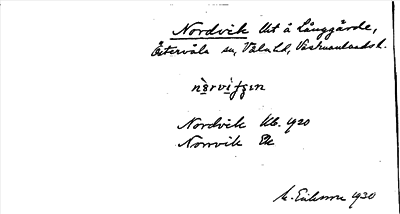 Nordvik Ut å Långgärde,
Östervåla sn, Våla hd, Västmanlands l.
nòrvifjɛn
Nordvik Kb. 1920
Norrvik Ek
M. Eriksson 1930